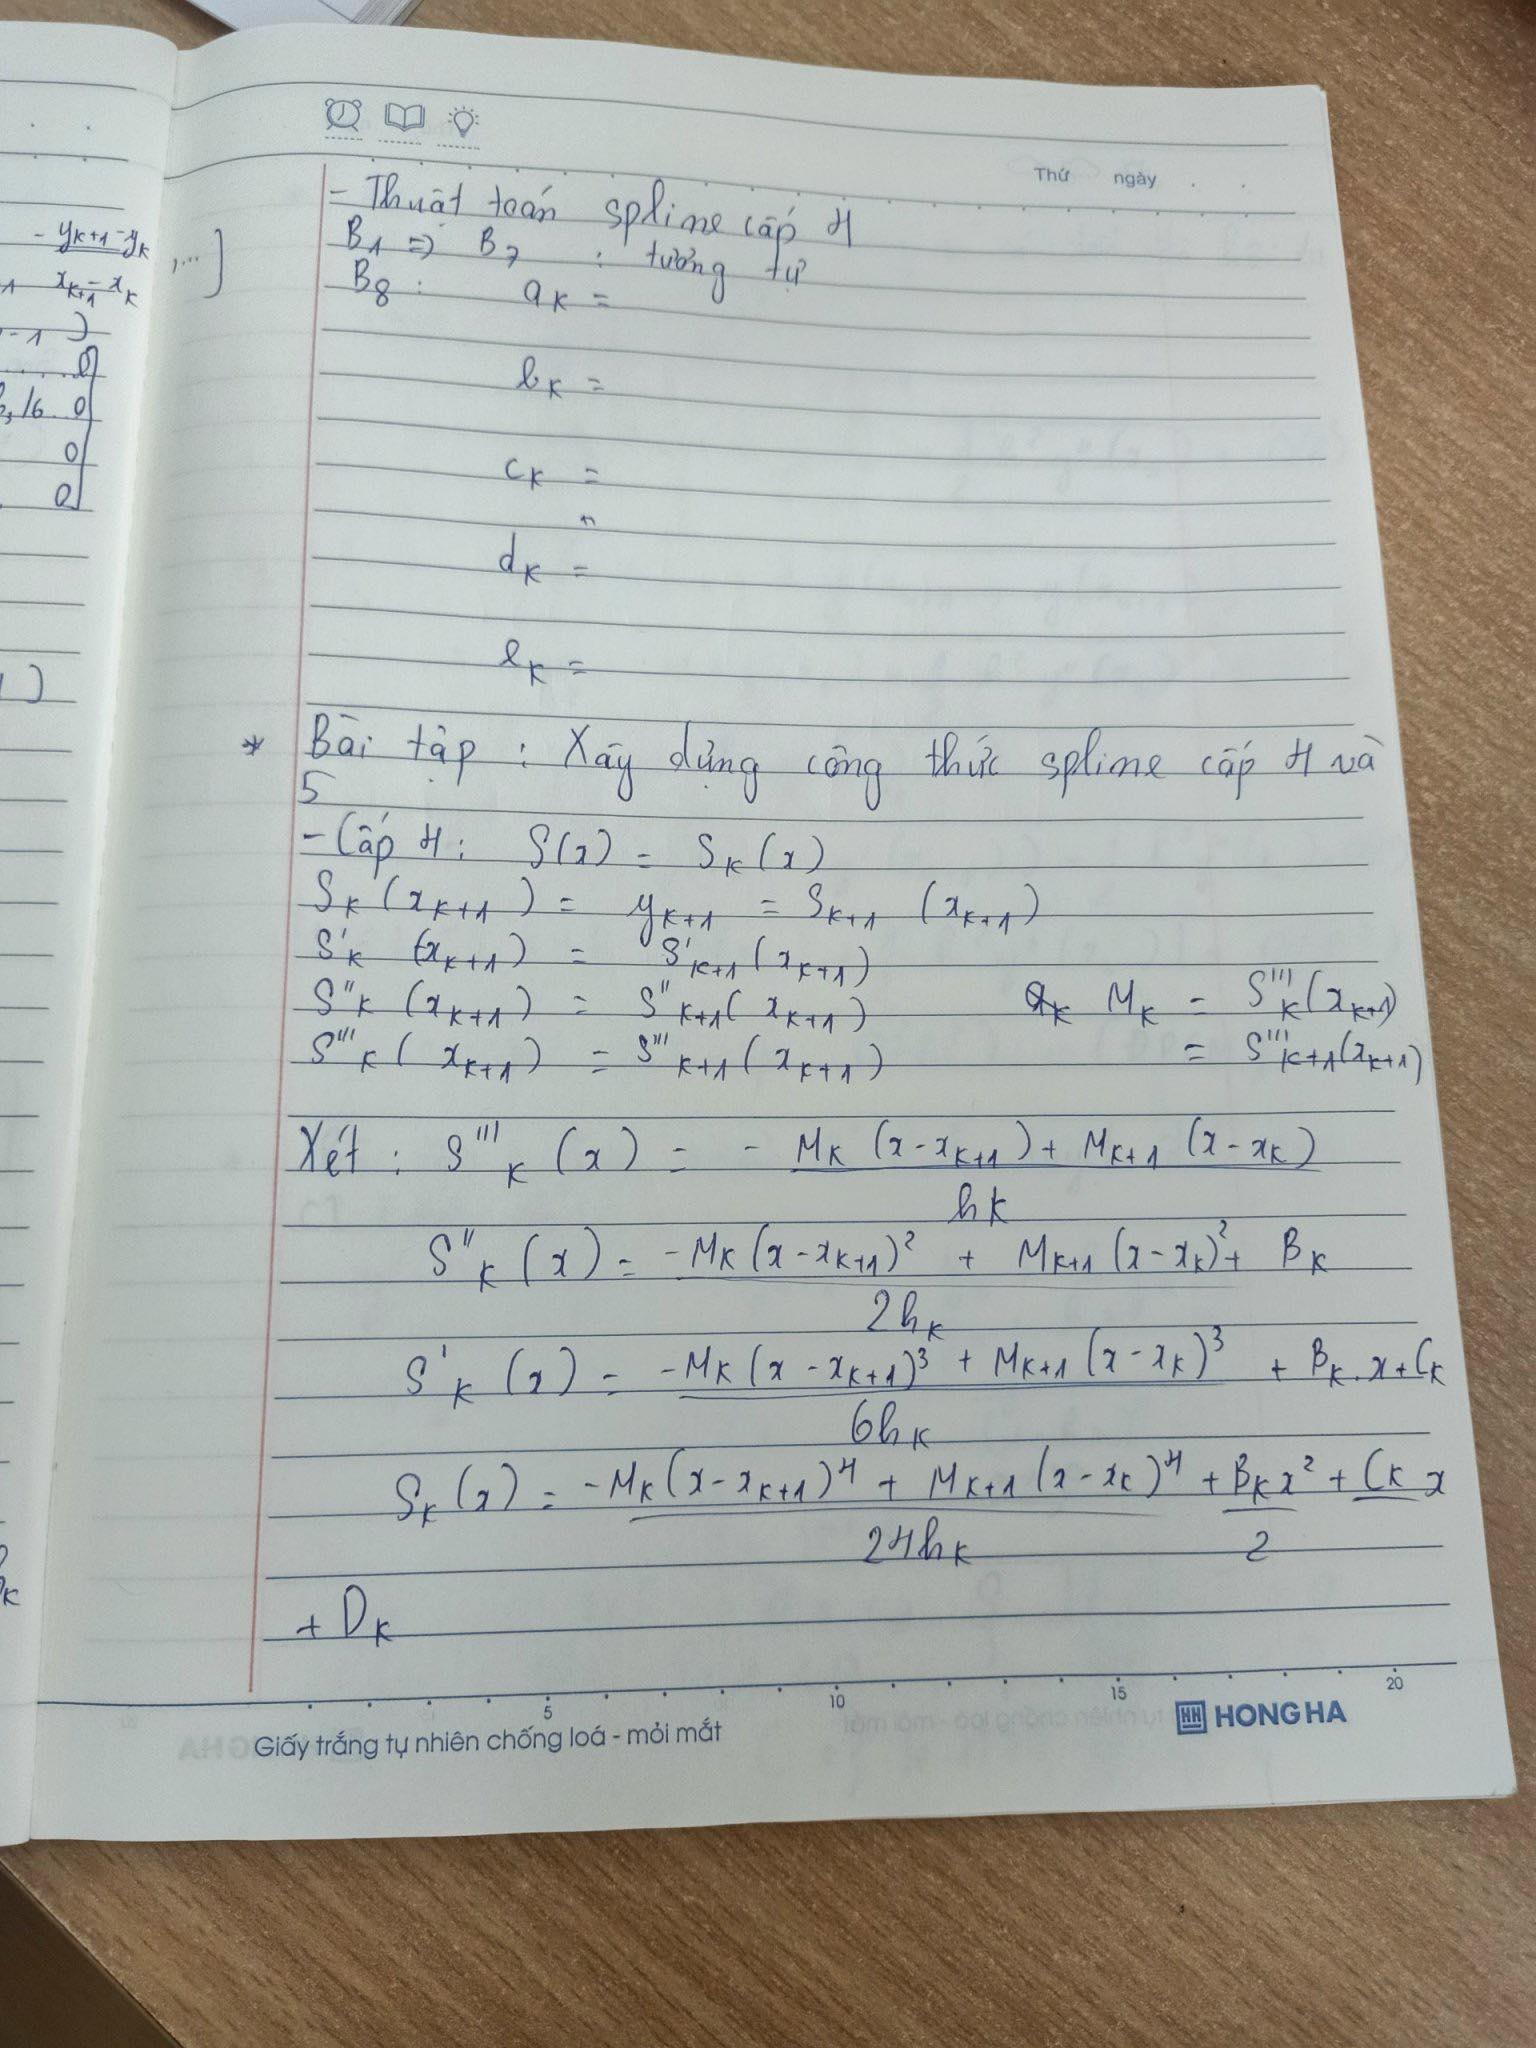 - yk+1-yk
,...]
xk+1-xk
-1)
0
16 0
0
0
Thứ ngày
- Thuật toán spline cấp 4
B1 => B7 : tương tự
B8 : ak =
bk =
ck =
dk =
ek =
* Bài tập : Xây dựng công thức spline cấp 4 và
5
- Cấp 4 : S(x) = Sk(x)
Sk(xk+1) = yk+1 = Sk+1(xk+1)
S'k(xk+1) = S'k+1(xk+1)
S''k(xk+1) = S''k+1(xk+1) Mk = S'''k(xk+1)
S'''k(xk+1) = S'''k+1(xk+1) = S'''k+1(xk+1)
Xét : S'''k(x) = - Mk(x-xk+1) + Mk+1(x-xk)
hk
S''k(x) = -Mk(x-xk+1)² + Mk+1(x-xk)² + Bk
2hk
S'k(x) = -Mk(x-xk+1)³ + Mk+1(x-xk)³ + Bk.x+Ck
6hk
Sk(x) = -Mk(x-xk+1)⁴ + Mk+1(x-xk)⁴ + Bkx² + Ck x
24hk 2
+ Dk
5 10 15 20
Giấy trắng tự nhiên chống loá - mỏi mắt
HH HONG HA